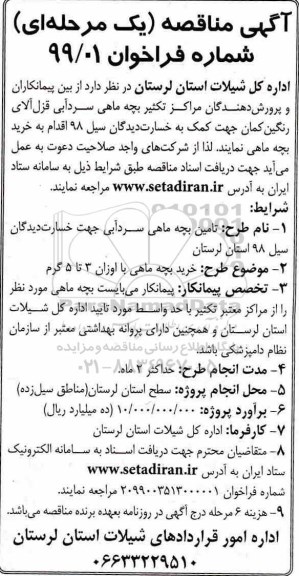 آگهی مناقصه (یک مرحله‌ای)
شماره فراخوان ۹۹/۰۱
اداره کل شیلات استان لرستان در نظر دارد از بین پیمانکاران
و پرورش‌دهندگان مراکز تکثیر بچه ماهی سردآبی قزل‌آلای
رنگین‌کمان جهت کمک به خسارت‌دیدگان سیل ۹۸ اقدام به خرید
بچه ماهی نمایند. لذا از شرکت‌های واجد صلاحیت دعوت به عمل
می‌آید جهت دریافت اسناد مناقصه طبق شرایط ذیل به سامانه ستاد
ایران به آدرس www.setadiran.ir مراجعه نمایند.
شرایط:
۱- نام طرح: تامین بچه ماهی سردآبی جهت خسارت‌دیدگان
سیل ۹۸ استان لرستان
۲- موضوع طرح: خرید بچه ماهی با اوزان ۳ تا ۵ گرم
۳- تخصص پیمانکار: پیمانکار می‌بایست بچه ماهی مورد نظر
را از مراکز معتبر تکثیر با حد واسط مورد تایید اداره کل شیلات
استان لرستان و همچنین دارای پروانه بهداشتی معتبر از سازمان
نظام دامپزشکی باشد.
۴- مدت انجام طرح: حداکثر ۲ ماه.
۵- محل انجام پروژه: سطح استان لرستان(مناطق سیل‌زده)
۶- برآورد پروژه: ۱۰/۰۰۰/۰۰۰/۰۰۰ (ده میلیارد ریال)
۷- کارفرما: اداره کل شیلات استان لرستان
۸- متقاضیان محترم جهت دریافت اسناد به سامانه الکترونیک
ستاد ایران به آدرس www.setadiran.ir
شماره فراخوان ۲۰۹۹۰۰۳۵۱۳۰۰۰۰۰۱ مراجعه نمایند.
۹- هزینه ۶ مرحله درج آگهی در روزنامه بعهده برنده مناقصه می‌باشد.
اداره امور قراردادهای شیلات استان لرستان
۰۶۶۳۳۲۲۹۵۱۰